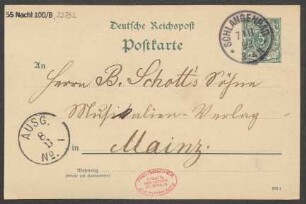 55 Nachl 100/B
Deutsche Reichspost
Postkarte
SCHLANGENBAD
An
Herrn B. Schott's Söhne
Musikalien-Verlag
in Mainz.
AUSG.
No. 1
Wohnung
(Straße und Hausnummer)